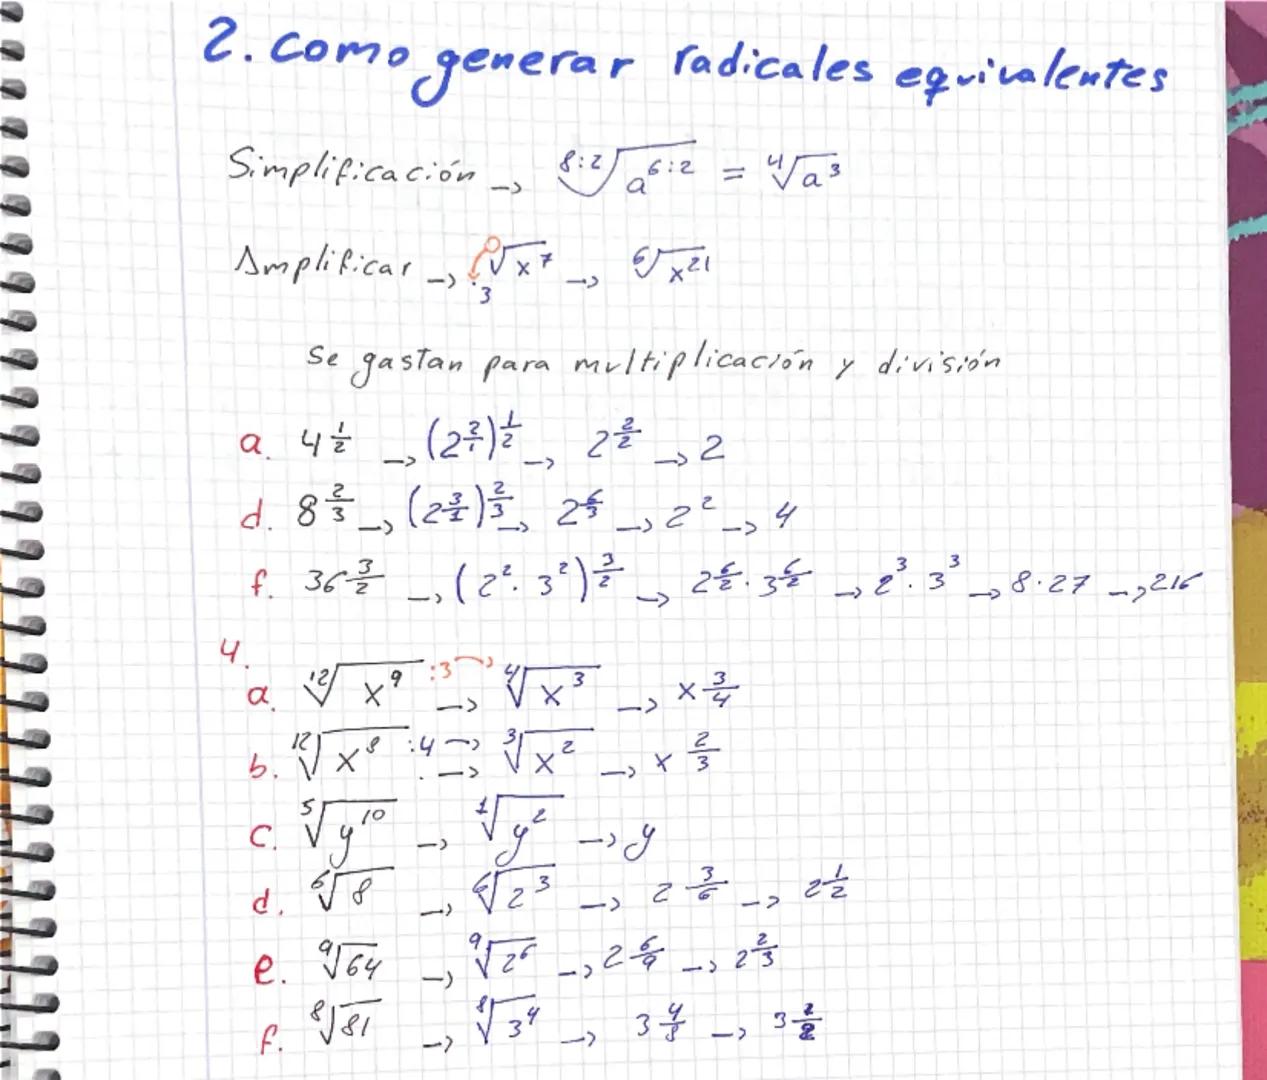 2. Como generar radicales equivalentes
Simplificación → ⁸:²√a⁶:² = ⁴√a³
Amplificar → √x⁷ → ⁶√x²¹
·3
Se gastan para multiplicación y división
a. 4^(1/2) → (2^(2/1))^(1/2) → 2^(2/2) → 2
d. 8^(2/3) → (2^(3/1))^(2/3) → 2^(6/3) → 2² → 4
f. 36^(3/2) → (2²·3²)^(3/2) → 2^(6/2)·3^(6/2) → 2³·3³ → 8·27 → 216
4.
a. ¹²√x⁹ :3 → ⁴√x³ → x^(3/4)
b. ¹²√x⁸ :4 → ³√x² → x^(2/3)
c. ⁵√y¹⁰ → ¹√y² → y
d. ⁶√8 → ⁶√2³ → 2^(3/6) → 2^(1/2)
e. ⁹√64 → ⁹√2⁶ → 2^(6/9) → 2^(2/3)
f. ⁸√81 → ⁸√3⁴ → 3^(4/8) → 3^(1/2)